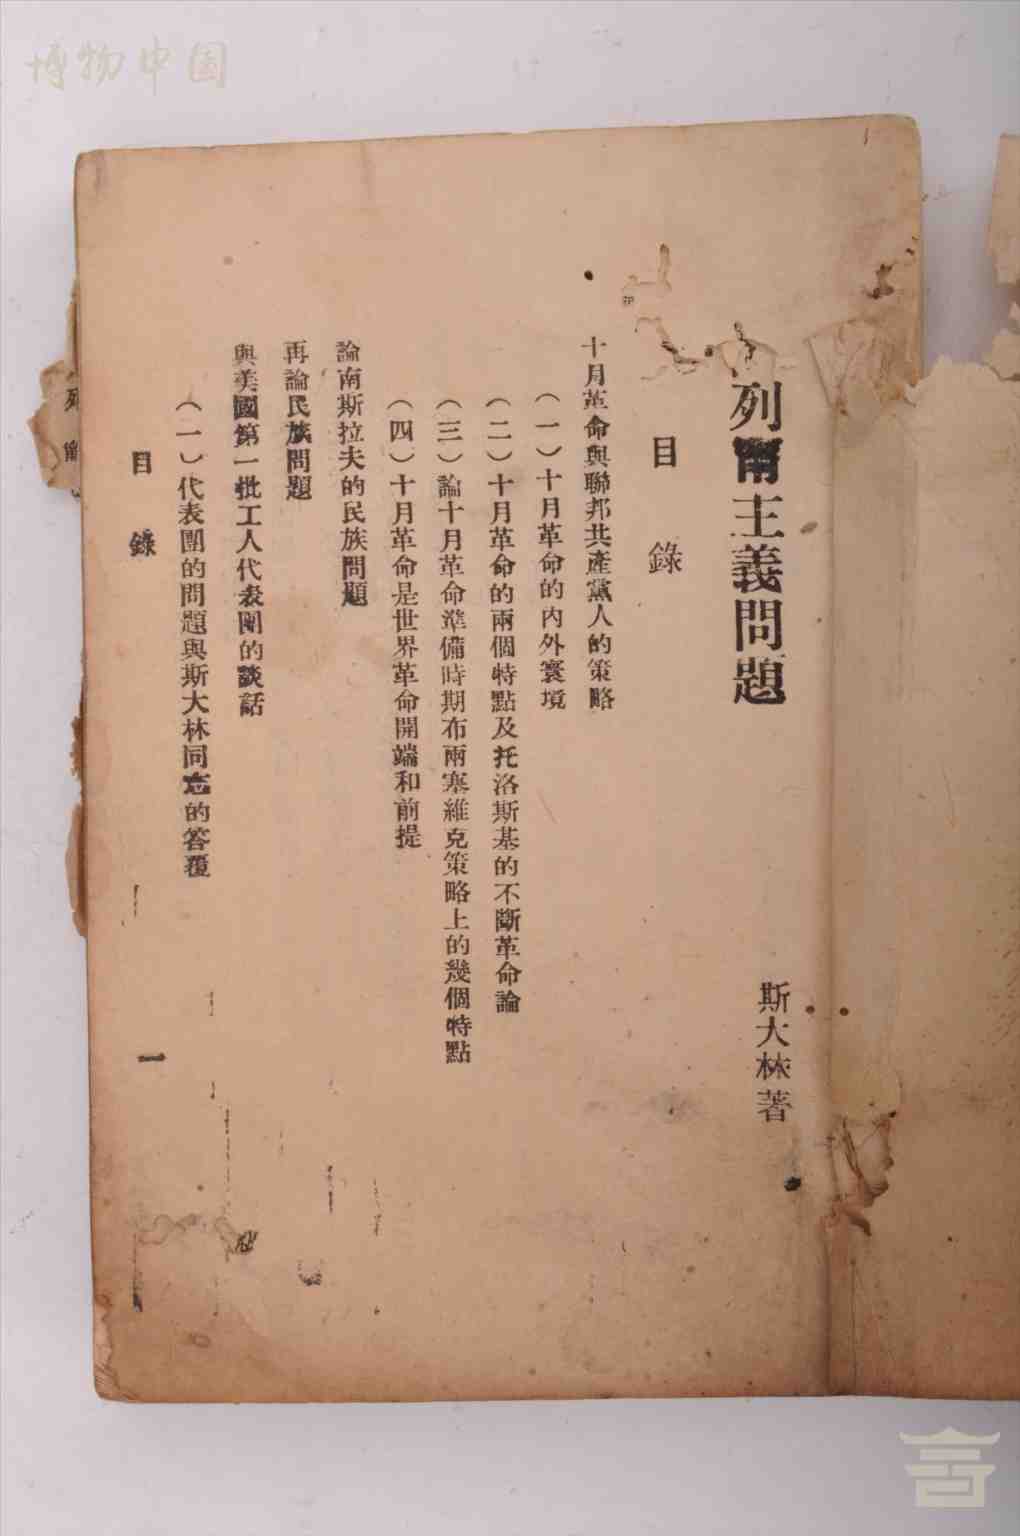 列寧主義問題
斯大林著
目錄
十月革命與聯邦共產黨人的策略
（一）十月革命的內外寰境
（二）十月革命的兩個特點及托洛斯基的不斷革命論
（三）論十月革命準備時期布爾塞維克策略上的幾個特點
（四）十月革命是世界革命開端和前提
論南斯拉夫的民族問題
再論民族問題
與美國第一批工人代表團的談話
（一）代表團的問題與斯大林同志的答覆
目錄
一
列
博物中国